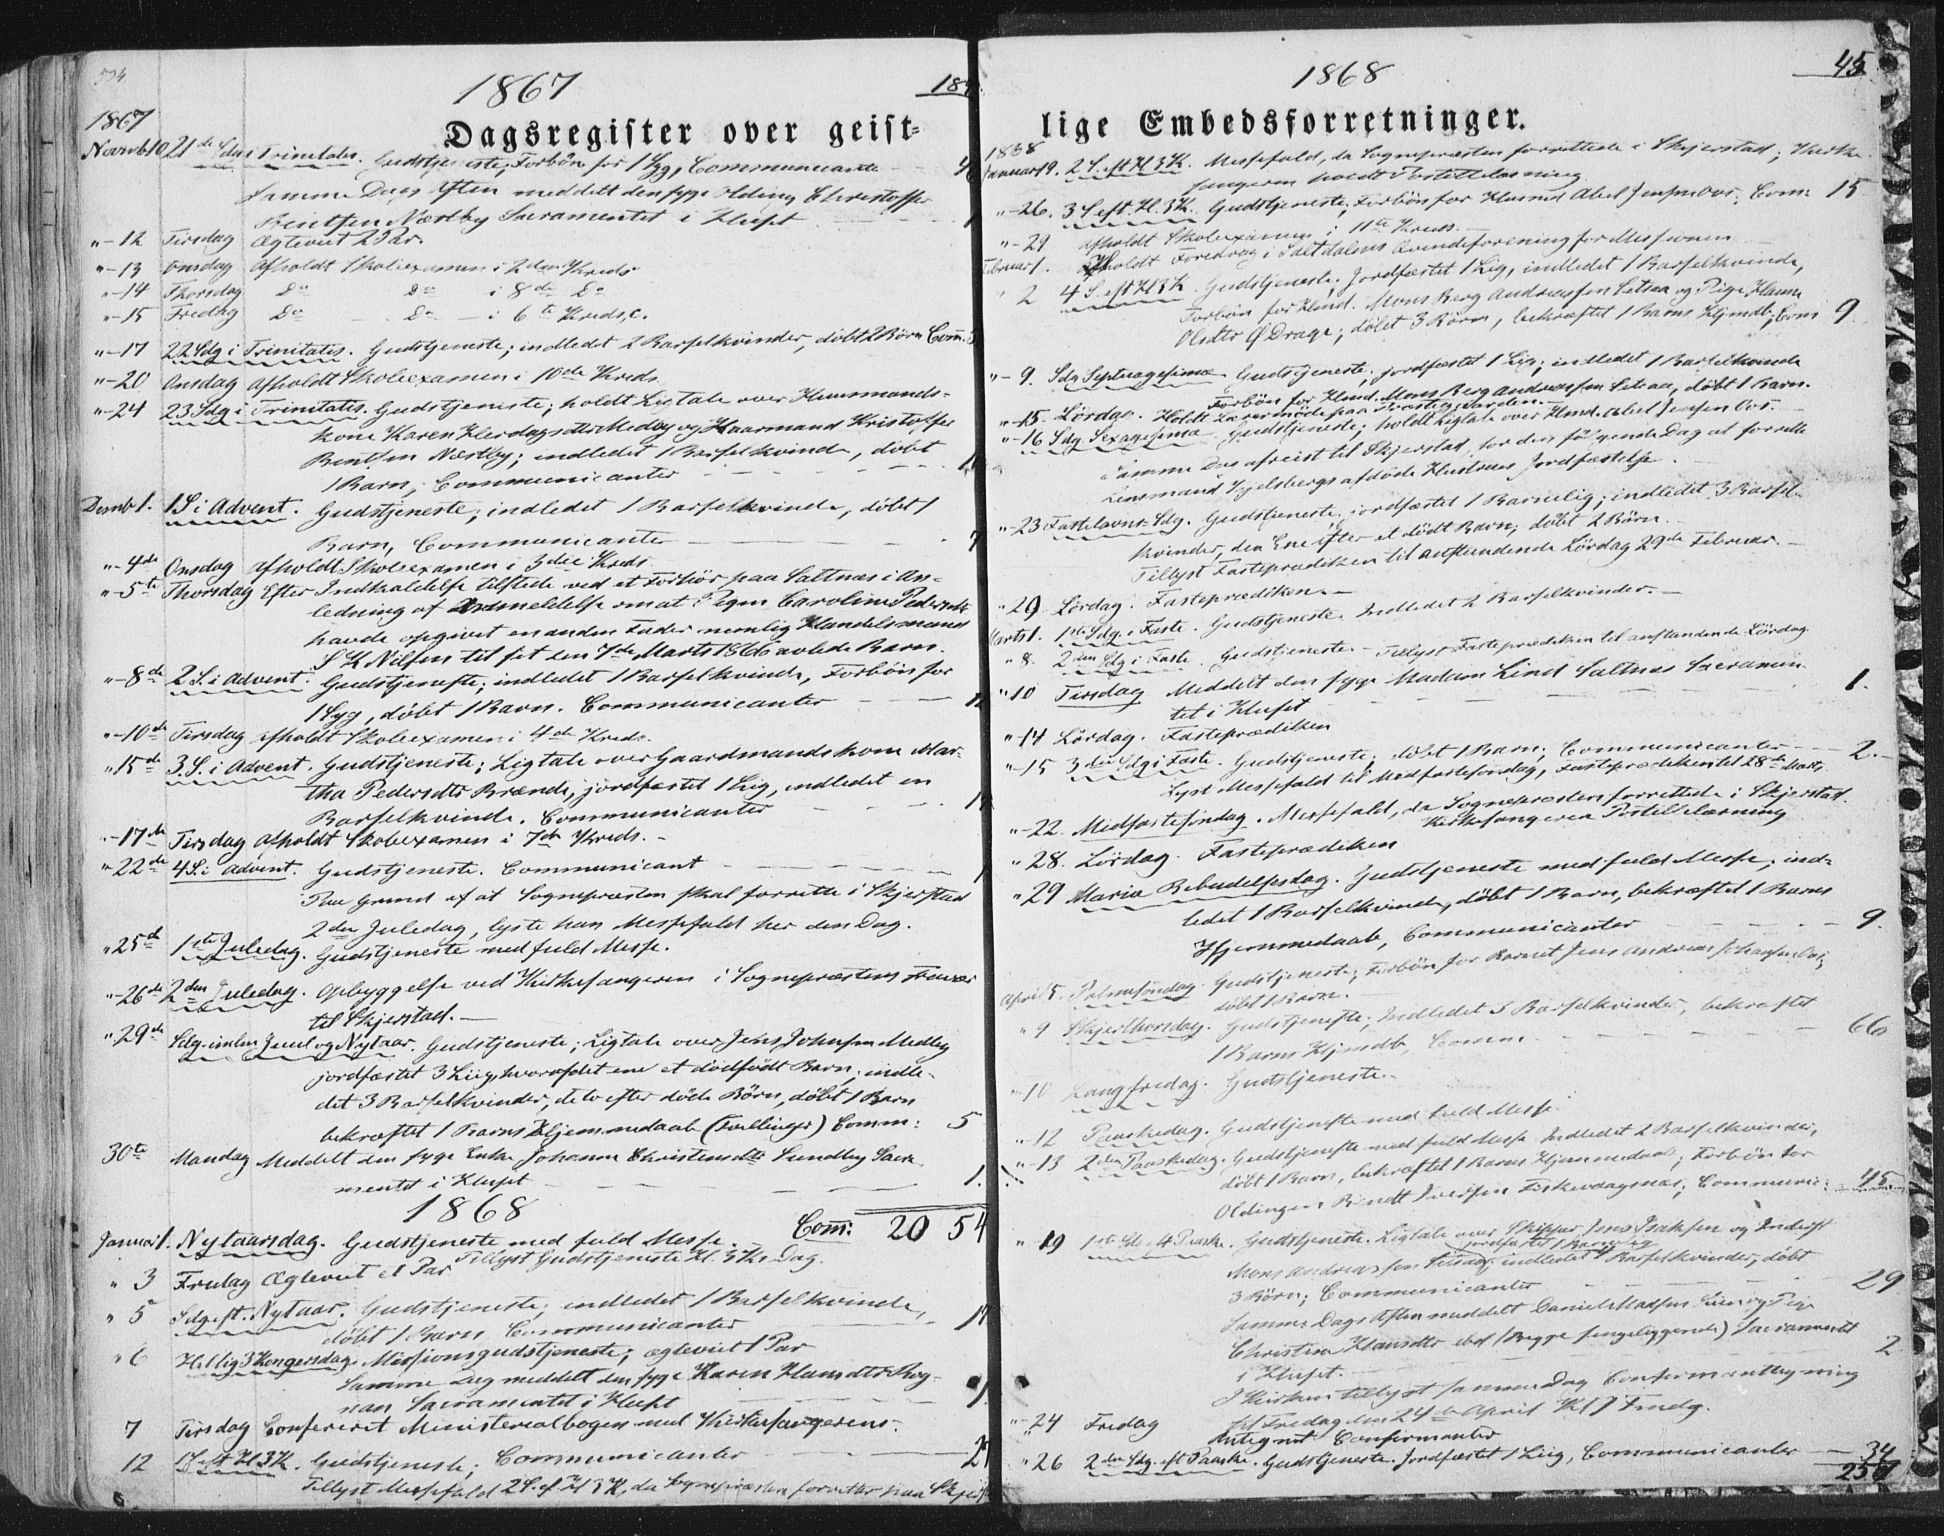 534
1867
Dagsregister over geist-
1867
Novemb 10 21de Sdag i Trinitatis. Gudstjeneste, Forbön for 1 Syg, Communicanter
Samme Dags Aften meddelt den syge Olding Christoffer
Bentsen Næstby Sacramentet i Huset
"-12 Tirsdag Ægteviet 2 Par.
"-13 Onsdag Afholdt Skoleexamen i 2den Kreds
"-14 Thorsdag Do Do i 8de Do
"-15 Fredag Do Do i 6te Kreds.
"-17 22 Sdg i Trinitatis. Gudstjeneste; indledet 2 Barselkvinder, döbt 2 Börn Com:
"-20 Onsdag Afholdt Skoleexamen i 10de Kreds
"-24 23 Sdg i Trinitatis. Gudstjeneste; holdt Ligtale over Huusmands-
kone Karen Medby og Kaarmand Kristoffer
Bentsen Næstby; indledet 1 Barselkvinde, döbt
1 Barn; Communicanter
Decmb 1. 1 S. i Advent. Gudstjeneste; indledet 1 Barselkvinde, döbt 1
Barn, Communicanter 7
"-4de Onsdag Afholdt Skoleexamen i 3die Kreds
"-5te Thorsdag Efter Indkaldelse tilstede ved et Forhör paa Saltnæs i An-
ledning af Anmeldelse om at Pigen Caroline Pedersdtr
havde opgivet en anden Fader nemlig Handelsmand
S K Nilsen til sit den 7de Marts 1866 avlede Barn.
"-8de 2 S. i Advent. Gudstjeneste; indledet 1 Barselkvinde, Forbön for
1 Syg, döbt 1 Barn. Communicanter
"-10de Tirsdag Afholdt Skoleexamen i 4de Kreds.
"15de 3. S. i Advent. Gudstjeneste; Ligtale over Gaardmandskone Mar-
tha Pedersdtr Brænde, jordfæstet 1 Liig, indledet en
Barselkvinde. Communicanter
"-17de Tirsdag Afholdt Skoleexamen i 7de Kreds.
"-22de 4 S. i Advent. Gudstjeneste. Communicant 1
Paa Grund af at Sognepræsten skal forrette i Skjerstad
2den Juledag, lyste han Messefald her den Dag.
"25de 1ste Juledag. Gudstjeneste med fuld Messe.
"-26de 2den Juledag. Opbyggelse ved Kirkesangeren i Sognepræstens Fravær
til Skjerstad.
"29de Sdg. imlm Juul og Nytaar. Gudstjeneste; Ligtale over Jens Johnsen Medby
jordfæstet 3 Liig, hvoraf det ene et dödfödt Barn, indle-
det 3 Barselkvinder, de to efter döde Börn, döbt 1 Barn
bekræftet 1 Barns Hjemmedaab (Tvillinger) Comm: 5
30te Mandag Meddelt den syge Enke Johanne Christensdtr Sundby Sacra-
mentet i Huset 1.
1868
Com: 20 54
Januar 1. Nytaarsdag. Gudstjeneste med fuld Messe.
Tillyst Gudstjeneste Hl. 3 Ks Dag.
" 3 Fredag Ægteviet et Par
" 5 Sdg eft. Nytaar. Gudstjeneste, indledet 1 Barselkvinde,
döbt 1 Barn Communicanter
" 6 Hellig 3 Kongersdag. Missionsgudstjeneste; ægteviet 1 Par
Samme Dag meddelt den syge Karen Hansdtr Rog-
nan Sacramentet i Huset 1.
7 Tirsdag Confereret Ministerialbogen med Kirkesangerens.
12 1 S. eft Hl 3 K. Gudstjeneste; Communicanter
Tillyst Messefald 2 S. ef Hl 3 K, da Sognepræsten forretter paa Skjerst
1868
45
lige Embedsforretninger.
1868
Januar 19. 2 S. eft Hl 3 K. Messefald, da Sognepræsten forrettede i Skjerstad; Kirke-
sangeren holdt Postillelæsning
"-26. 3 S eft. Hl. 3 K. Gudstjeneste; Forbön for Husmd Abel Jensen Os; Com: 15
"-29 Afholdt Skoleexamen i 11te Kreds.
Februar 1. Afholdt Foredrag i Saltdalens Qvindeforening for Missionen
" 2 4 S. eft Hl 3 K. Gudstjeneste, Jordfæstet 1 Lig, indledet 1 Barselkvinde,
Forbön for Hmd. Mons Berg Andreassen Setsaa og Pige Hanna
Olsdtr Drage; döbt 3 Börn, bekræftet 1 Barns Hjmdb; Com 9.
"- 9. Sdg Septuagesima Gudstjeneste, jordfæstet 1 Lig; indledet 1 Barselkvinde
Forbön for Hmd. Mons Berg Andreassen Setsaa, döbt 1 Barn.
"-15. Lördag. Holdt Lærermöde paa Præstegaarden.
"-16 Sdg Sexagesima Gudstjeneste; holdt Ligtale over Hmd. Abel Jensen Os.
Samme Dag afreist til Skjerstad, for den fölgende Dag at forrette
Lensmand Hjelsbergs afdöde Hustrues Jordfæstelse.
"-23 Fastelavns-Sdg. Gudstjeneste, jordfæstet 1 Barnelig; indledet 3 Barsel-
kvinder, den Ene efter et dödt Barn; döbt 2 Börn.
Tillyst Fasteprædiken til anstundende Lördag 29de Februar.
"29 Lördag. Fasteprædiken.
Marts 1. 1ste Sdg. i Faste. Gudstjeneste. Indledet 2 Barselkvinder.
"8. 2den Sdg i Faste. Gudstjeneste. Tillyst Fasteprædiken til anstundende Lördag
"10 Tirsdag Meddelt den syge Madam Lind Saltnæs Sacramen-
tet i Huset 1.
"-14 Lördag. Fasteprædiken
"-15 3die Sdg i Faste. Gudstjeneste; döbt 1 Barn; Communicanter 2.
Lyst Messefald til Midfastesöndag, Fasteprædiken til 28de Marts
"-22. Midfastesöndag. Messefald, da Sognepræsten forrettede i Skjerstad.
Kirkesangeren Postillelæsning
"28. Lördag. Fasteprædiken
"29 Maria Bebudelsesdag. Gudstjeneste med fuld Messe, ind-
ledet 1 Barselkvinde, döbt 1 Barn, bekræftet 1 Barns
Hjemmedaab, Communicanter 9.
April 5. Palmesöndag. Gudstjeneste; Forbön for Barnet Jens Andreas Johansen Os;
döbt 1 Barn.
"9 Skjerthorsdag. Gudstjeneste; Indledet 3 Barselkvinder, bekræftet
1 Barns Hjmdb, Comm 66
"-10 Langfredag. Gudstjeneste.
"-12 Paaskedag. Gudstjeneste med fuld Messe.
"-13 2den Paaskedag. Gudstjeneste med fuld Messe Indledet 2 Barselkvinder,
döbt 1 Barn, bekræftet 1 Barns Hjemmedaab; Forbön for
Oldingen Berndt Iversen Fiskevaagnæs; Communic: 45.
"19 1ste Sdg eft Paaske. Gudstjeneste. Ligtale over Skipper Jens Isaksen og Inderst
jordfæstet 1 Barnelig
Mons Andreassen Setsaa; indledet 4 Barselkvinder, döbt
3 Börn; Communicanter 29
Samme Dags Aften meddelt Daniel Madsen og Pige
Christine Hansdtr ibd (begge sengeliggende) Sacramentet
i Huset. 2
I Kirken tillyst samme Dag Confirmantteg­ning
til Fredag den 24de April
"-24 Fredag Antegnet Confirmanter
"26 2den Sdg. eft Paaske. Gudstjeneste. Jordfæstet 1 Liig, Communicanter 34